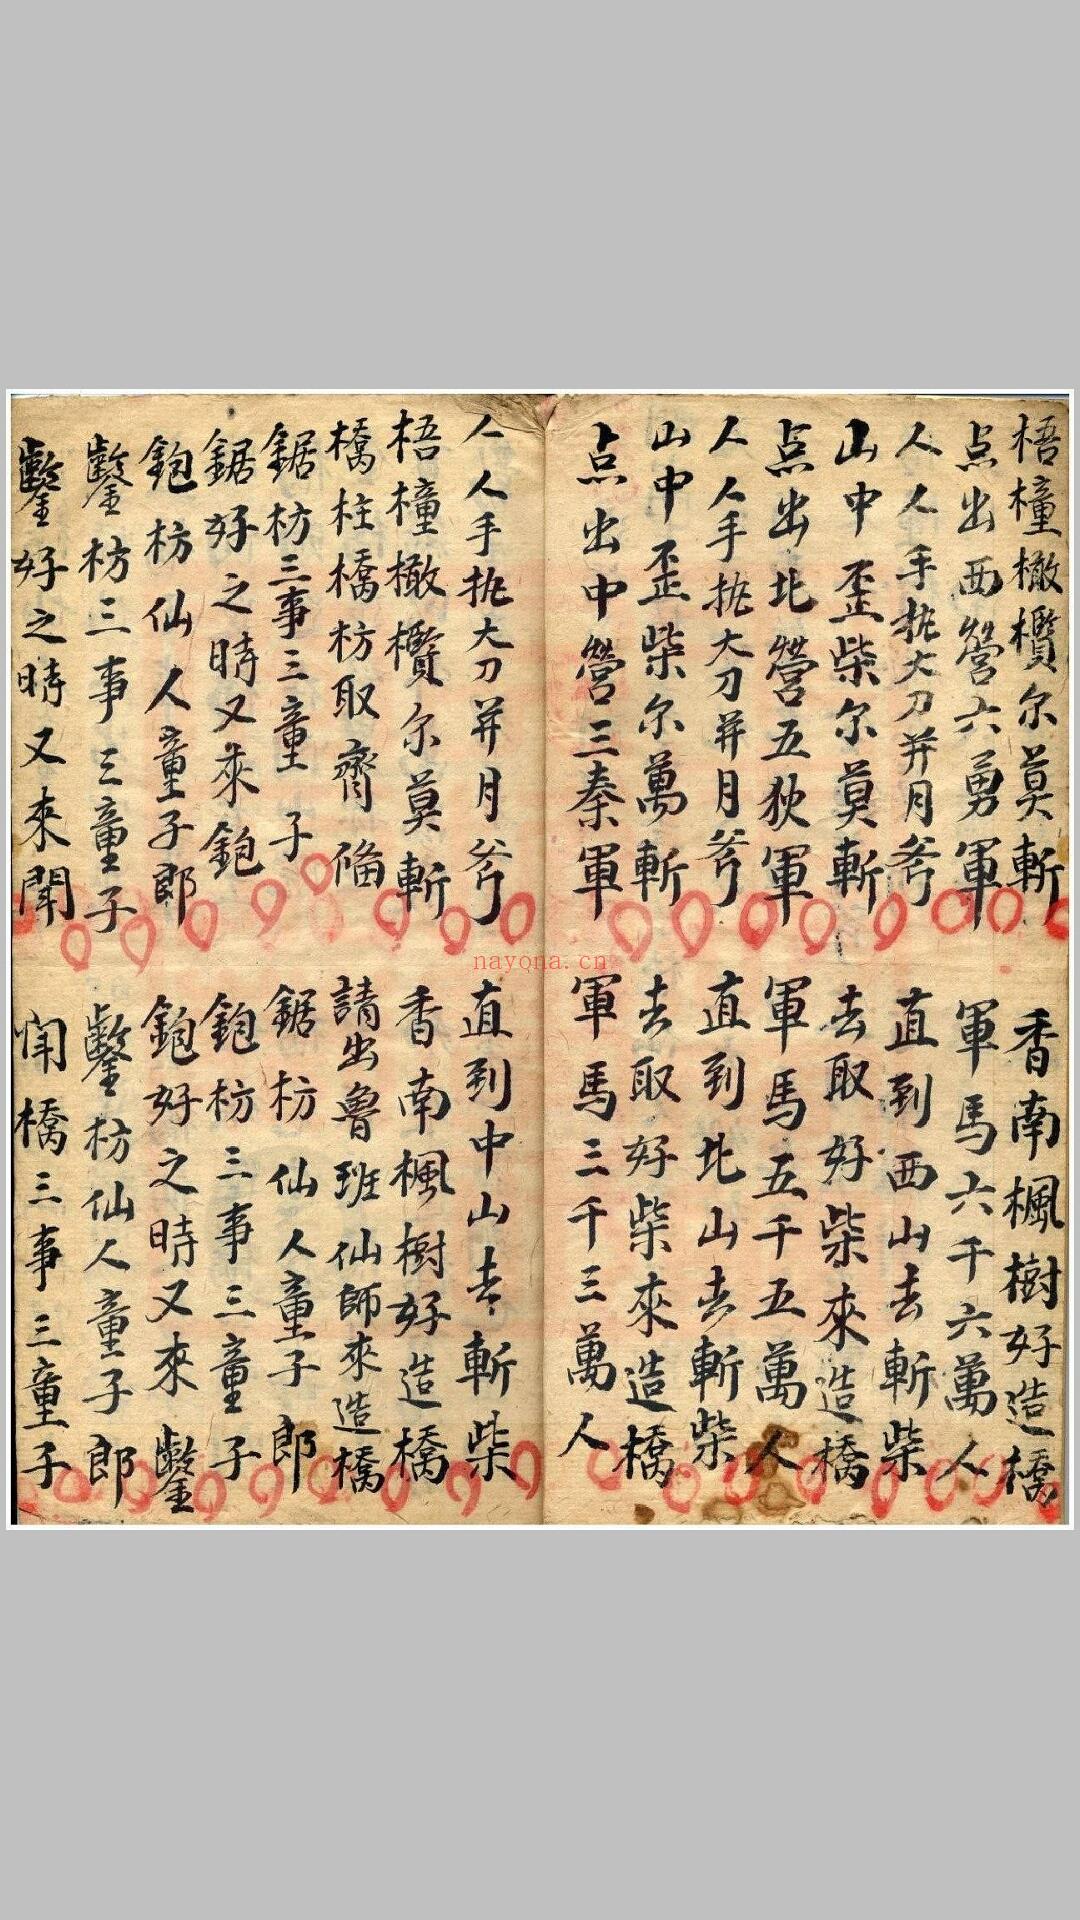 梧橦橄欖尔莫斬 香南楓樹好造橋
点出西營六勇軍 軍馬六千六萬人
人人手执大刀并月斧 直到西山去斬柴
山中歪柴尔莫斬 去取好柴來造橋
点出北營五狄軍 軍馬五千五萬人
人人手执大刀并月斧 直到北山去斬柴
山中歪柴尔萬斬 去取好柴來造橋
点出中營三秦軍 軍馬三千三萬人
人人手执大刀并月斧 直到中山去斬柴
梧橦橄欖尔莫斬 香南楓樹好造橋
橋柱橋枋取齊備 請出魯班仙師來造橋
鋸枋三事三童子 鋸枋仙人童子郎
鋸好之時又來鉋 鉋枋三事三童子
鉋枋仙人童子郎 鉋好之時又來鑿
鑿枋三事三童子 鑿枋仙人童子郎
鑿好之時又來鬥 鬥橋三事三童子
nayona.cn